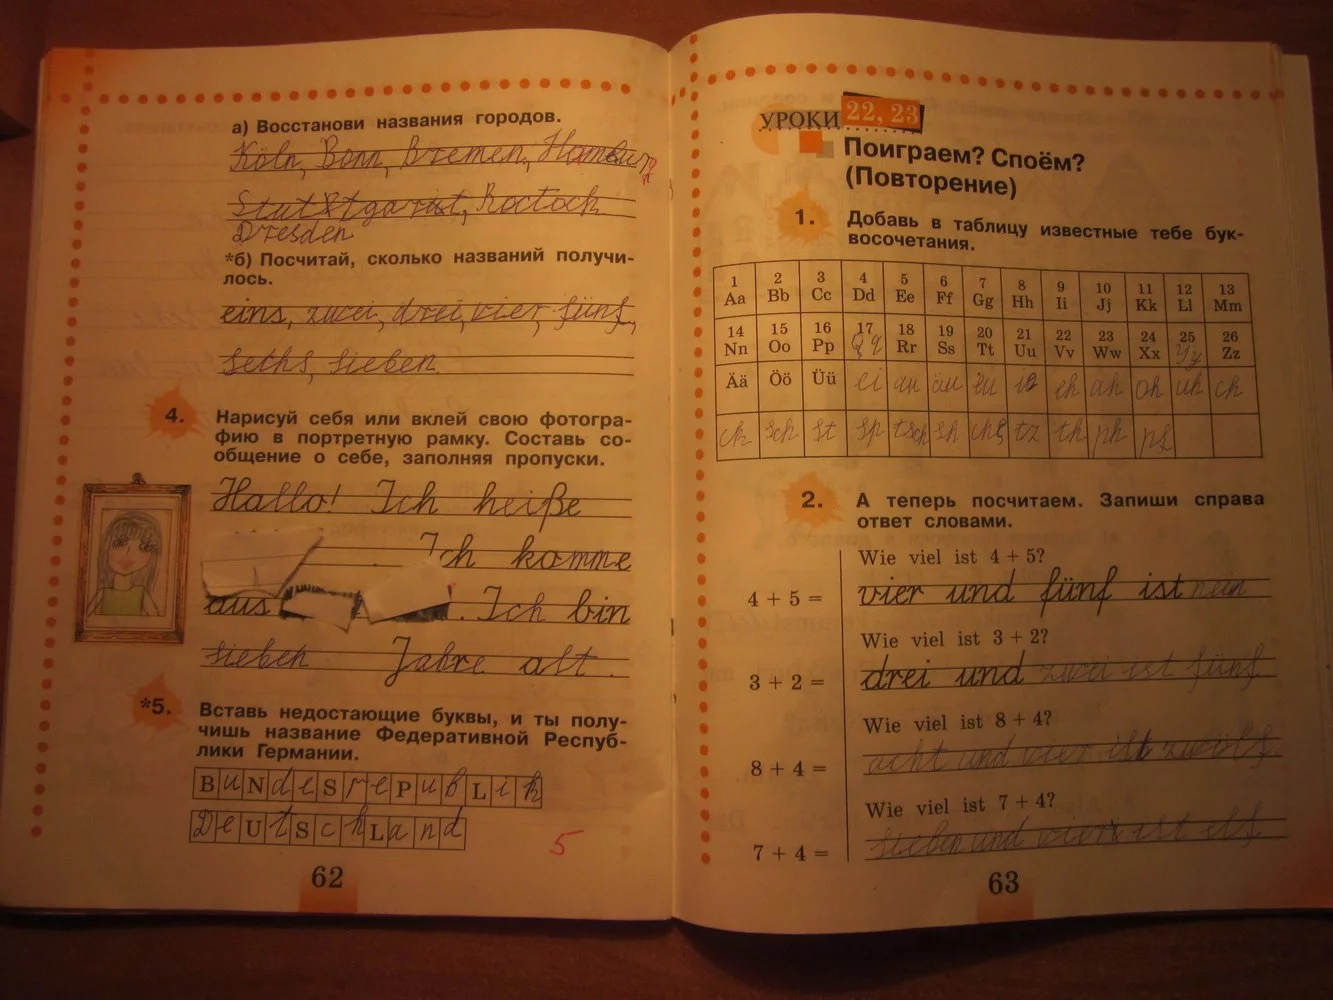 а) Восстанови названия городов.
Köln, Bonn, Bremen, Hamburg
Roctock
Dresden
*б) Посчитай, сколько названий получи-
лось.
eins, zwei, drei, vier, fünf,
sechs, sieben.
4. Нарисуй себя или вклей свою фотогра-
фию в портретную рамку. Составь со-
общение о себе, заполняя пропуски.
Hallo! Ich heiße
Ich komme
aus . Ich bin
sieben Jahre alt.
*5. Вставь недостающие буквы, и ты полу-
чишь название Федеративной Респуб-
лики Германии.
BundeSrePubLik
DeUtSchLand
5
62
УРОКИ 22, 23
Поиграем? Споём?
(Повторение)
1. Добавь в таблицу известные тебе бук-
восочетания.
1 2 3 4 5 6 7 8 9 10 11 12 13
Aa Bb Cc Dd Ee Ff Gg Hh Ii Jj Kk Ll Mm
14 15 16 17 18 19 20 21 22 23 24 25 26
Nn Oo Pp Qq Rr Ss Tt Uu Vv Ww Xx Yy Zz
Ää Öö Üü ei au äu eu ie eh ah oh uh ch
ck sch st sp tsch sh chs tz th ph pf
2. А теперь посчитаем. Запиши справа
ответ словами.
Wie viel ist 4 + 5?
4 + 5 = vier und fünf ist nein
Wie viel ist 3 + 2?
3 + 2 = drei und zwei ist fünf
Wie viel ist 8 + 4?
8 + 4 = acht und vier ist zwölf.
Wie viel ist 7 + 4?
7 + 4 = sieben und vier ist elf
63